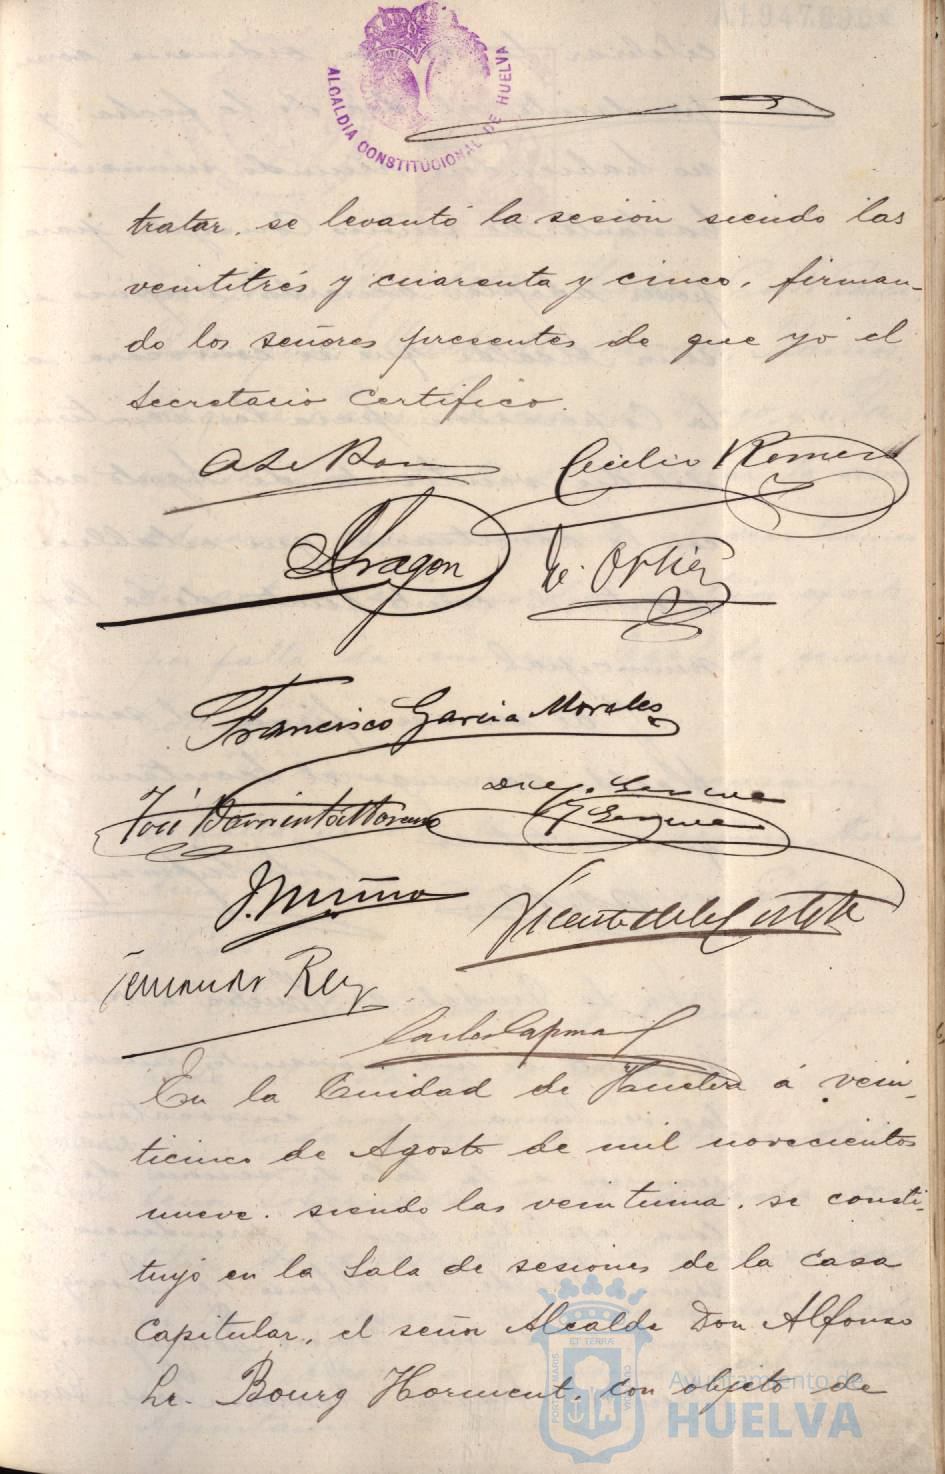 A1.947.
ALCALDIA CONSTITUCIONAL DE HUELVA
tratar, se levantó la sesión siendo las
veintitrés y cuarenta y cinco, firman-
do los señores presentes de que yo el
Secretario Certifico.
Cecilio Romero
Aragon
Ortiz
Francisco Garcia Morales
José Barrientos Moreno
J. Muñoz
Vicente de la
Fernando Rey
Carlos Capman
En la Ciudad de Huelva á vein-
ticinco de Agosto de mil novecientos
nueve. siendo las veintiuna, se consti-
tuyó en la Sala de sesiones de la Casa
Capitular, el señor Alcalde Don Alfonso
Le Bourg Horment, con objeto de
Ayuntamiento de
HUELVA